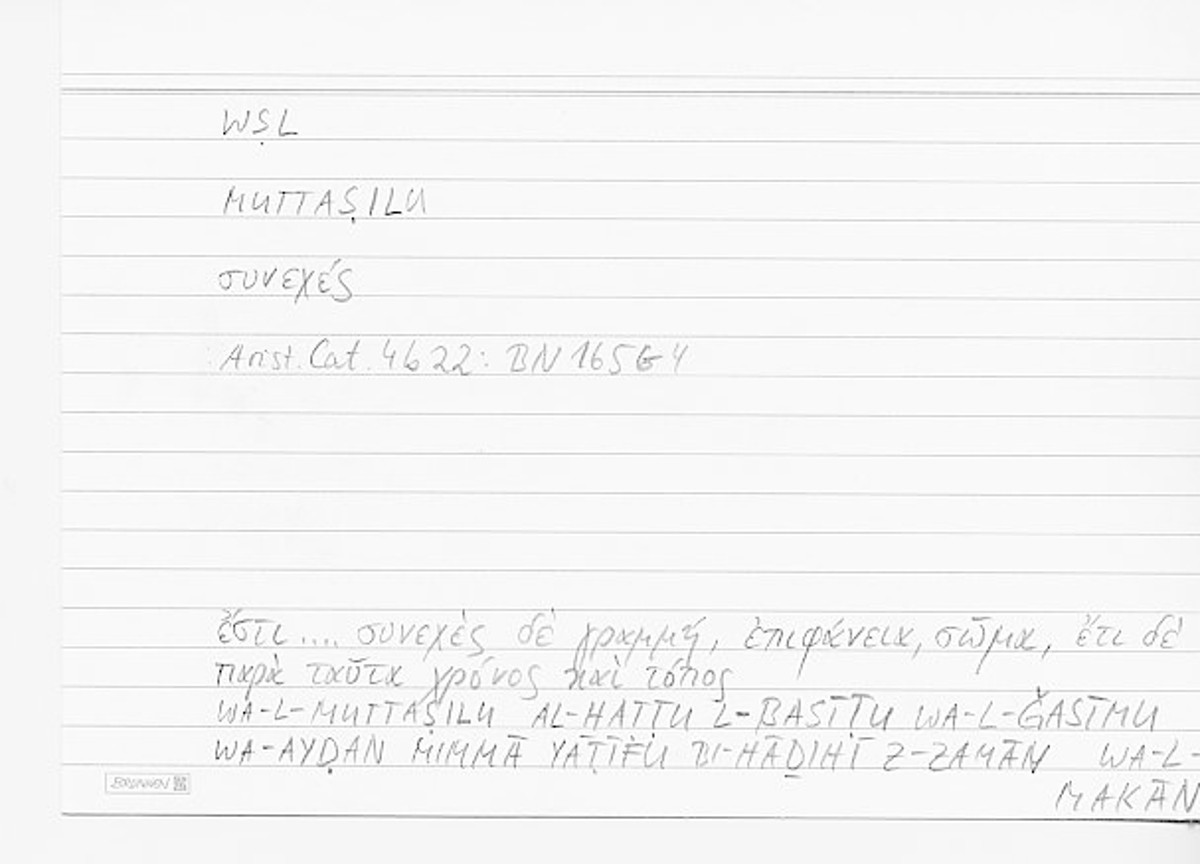 WṢL
MUTTAṢILU
συνεχές
Arist. Cat. 4b22: BN 165 G 4
ἔστι .... συνεχὲς δὲ γραμμή, ἐπιφάνεια, σῶμα, ἔτι δὲ
παρὰ ταῦτα χρόνος καὶ τόπος
WA-L-MUTTAṢILU AL-HAṬṬU L-BASĪṬU WA-L-ǦASĪMU
WA-AYḌAN MIMMĀ YAṬĪFU BI-HĀḎIHĪ Z-ZAMĀN WA-L-
MAKĀN
BRUNNEN